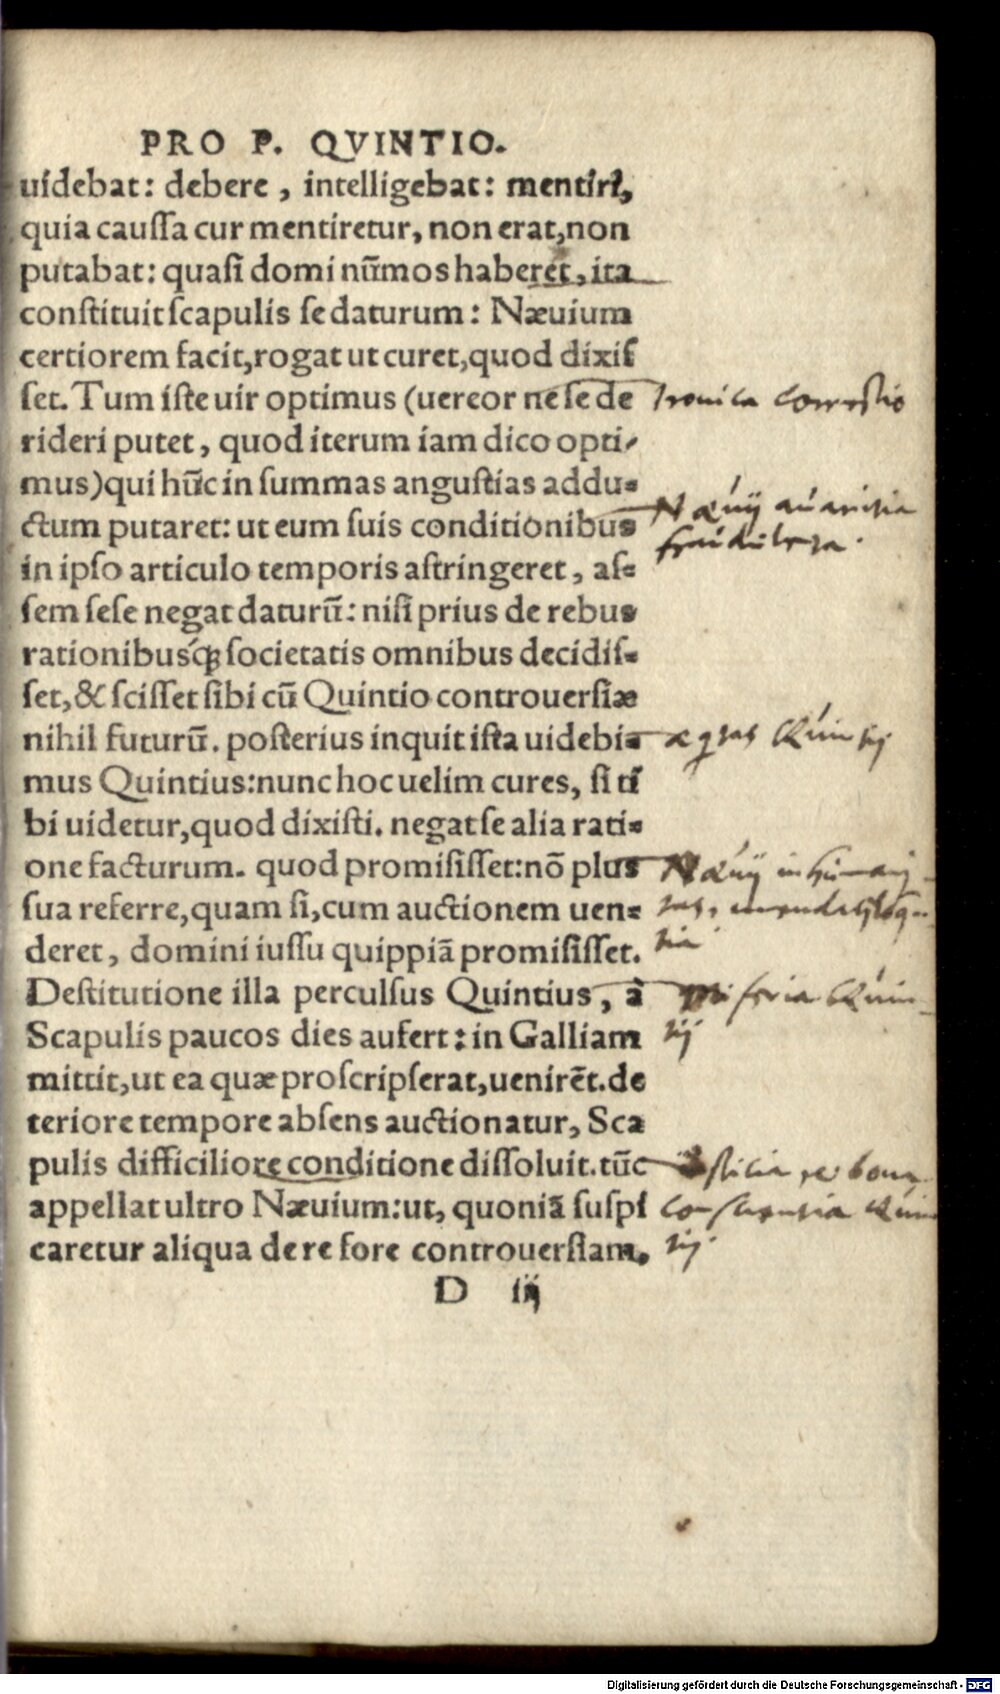 PRO P. QVINTIO.
uidebat: debere, intelligebat: mentiri,
quia cauſſa cur mentiretur, non erat, non
putabat: quaſi domi nūmos haberet, ita
conſtituit ſcapulis ſe daturum: Næuium
certiorem facit, rogat ut curet, quod dixiſ
ſet. Tum iſte uir optimus (uereor ne ſe de
Ironica correctio
rideri putet, quod iterum iam dico opti-
mus) qui hūc in ſummas anguſtias addu-
ctum putaret: ut eum ſuis conditionibus
Næuij auaritia
in ipſo articulo temporis aſtringeret, aſ-
fraudulenta.
ſem ſeſe negat daturū: niſi prius de rebus
rationibusq́; ſocietatis omnibus decidiſ-
ſet, & ſciſſet ſibi cū Quintio controuerſiæ
nihil futurū. poſterius inquit iſta uidebi-
Quintij
mus Quintius: nunc hoc uelim cures, ſi ti
bi uidetur, quod dixiſti. negat ſe alia rati-
one facturum. quod promiſiſſet: nō plus
Næuij inhumani-
ſua referre, quam ſi, cum auctionem uen-
tas,
deret, domini iuſſu quippiā promiſiſſet.
tia
Deſtitutione illa perculſus Quintius, à
Miſeria Quin-
Scapulis paucos dies aufert: in Galliam
tij
mittit, ut ea quæ proſcripſerat, uenirēt. de
teriore tempore abſens auctionatur, Sca
pulis difficiliore conditione diſſoluit. tūc
Iuſticia et bona
appellat ultro Næuium: ut, quoniā ſuſpi
conſcientia Quin
caretur aliqua de re fore controuerſiam,
tij.
D iij
Digitalisierung gefördert durch die Deutsche Forschungsgemeinschaft - DFG